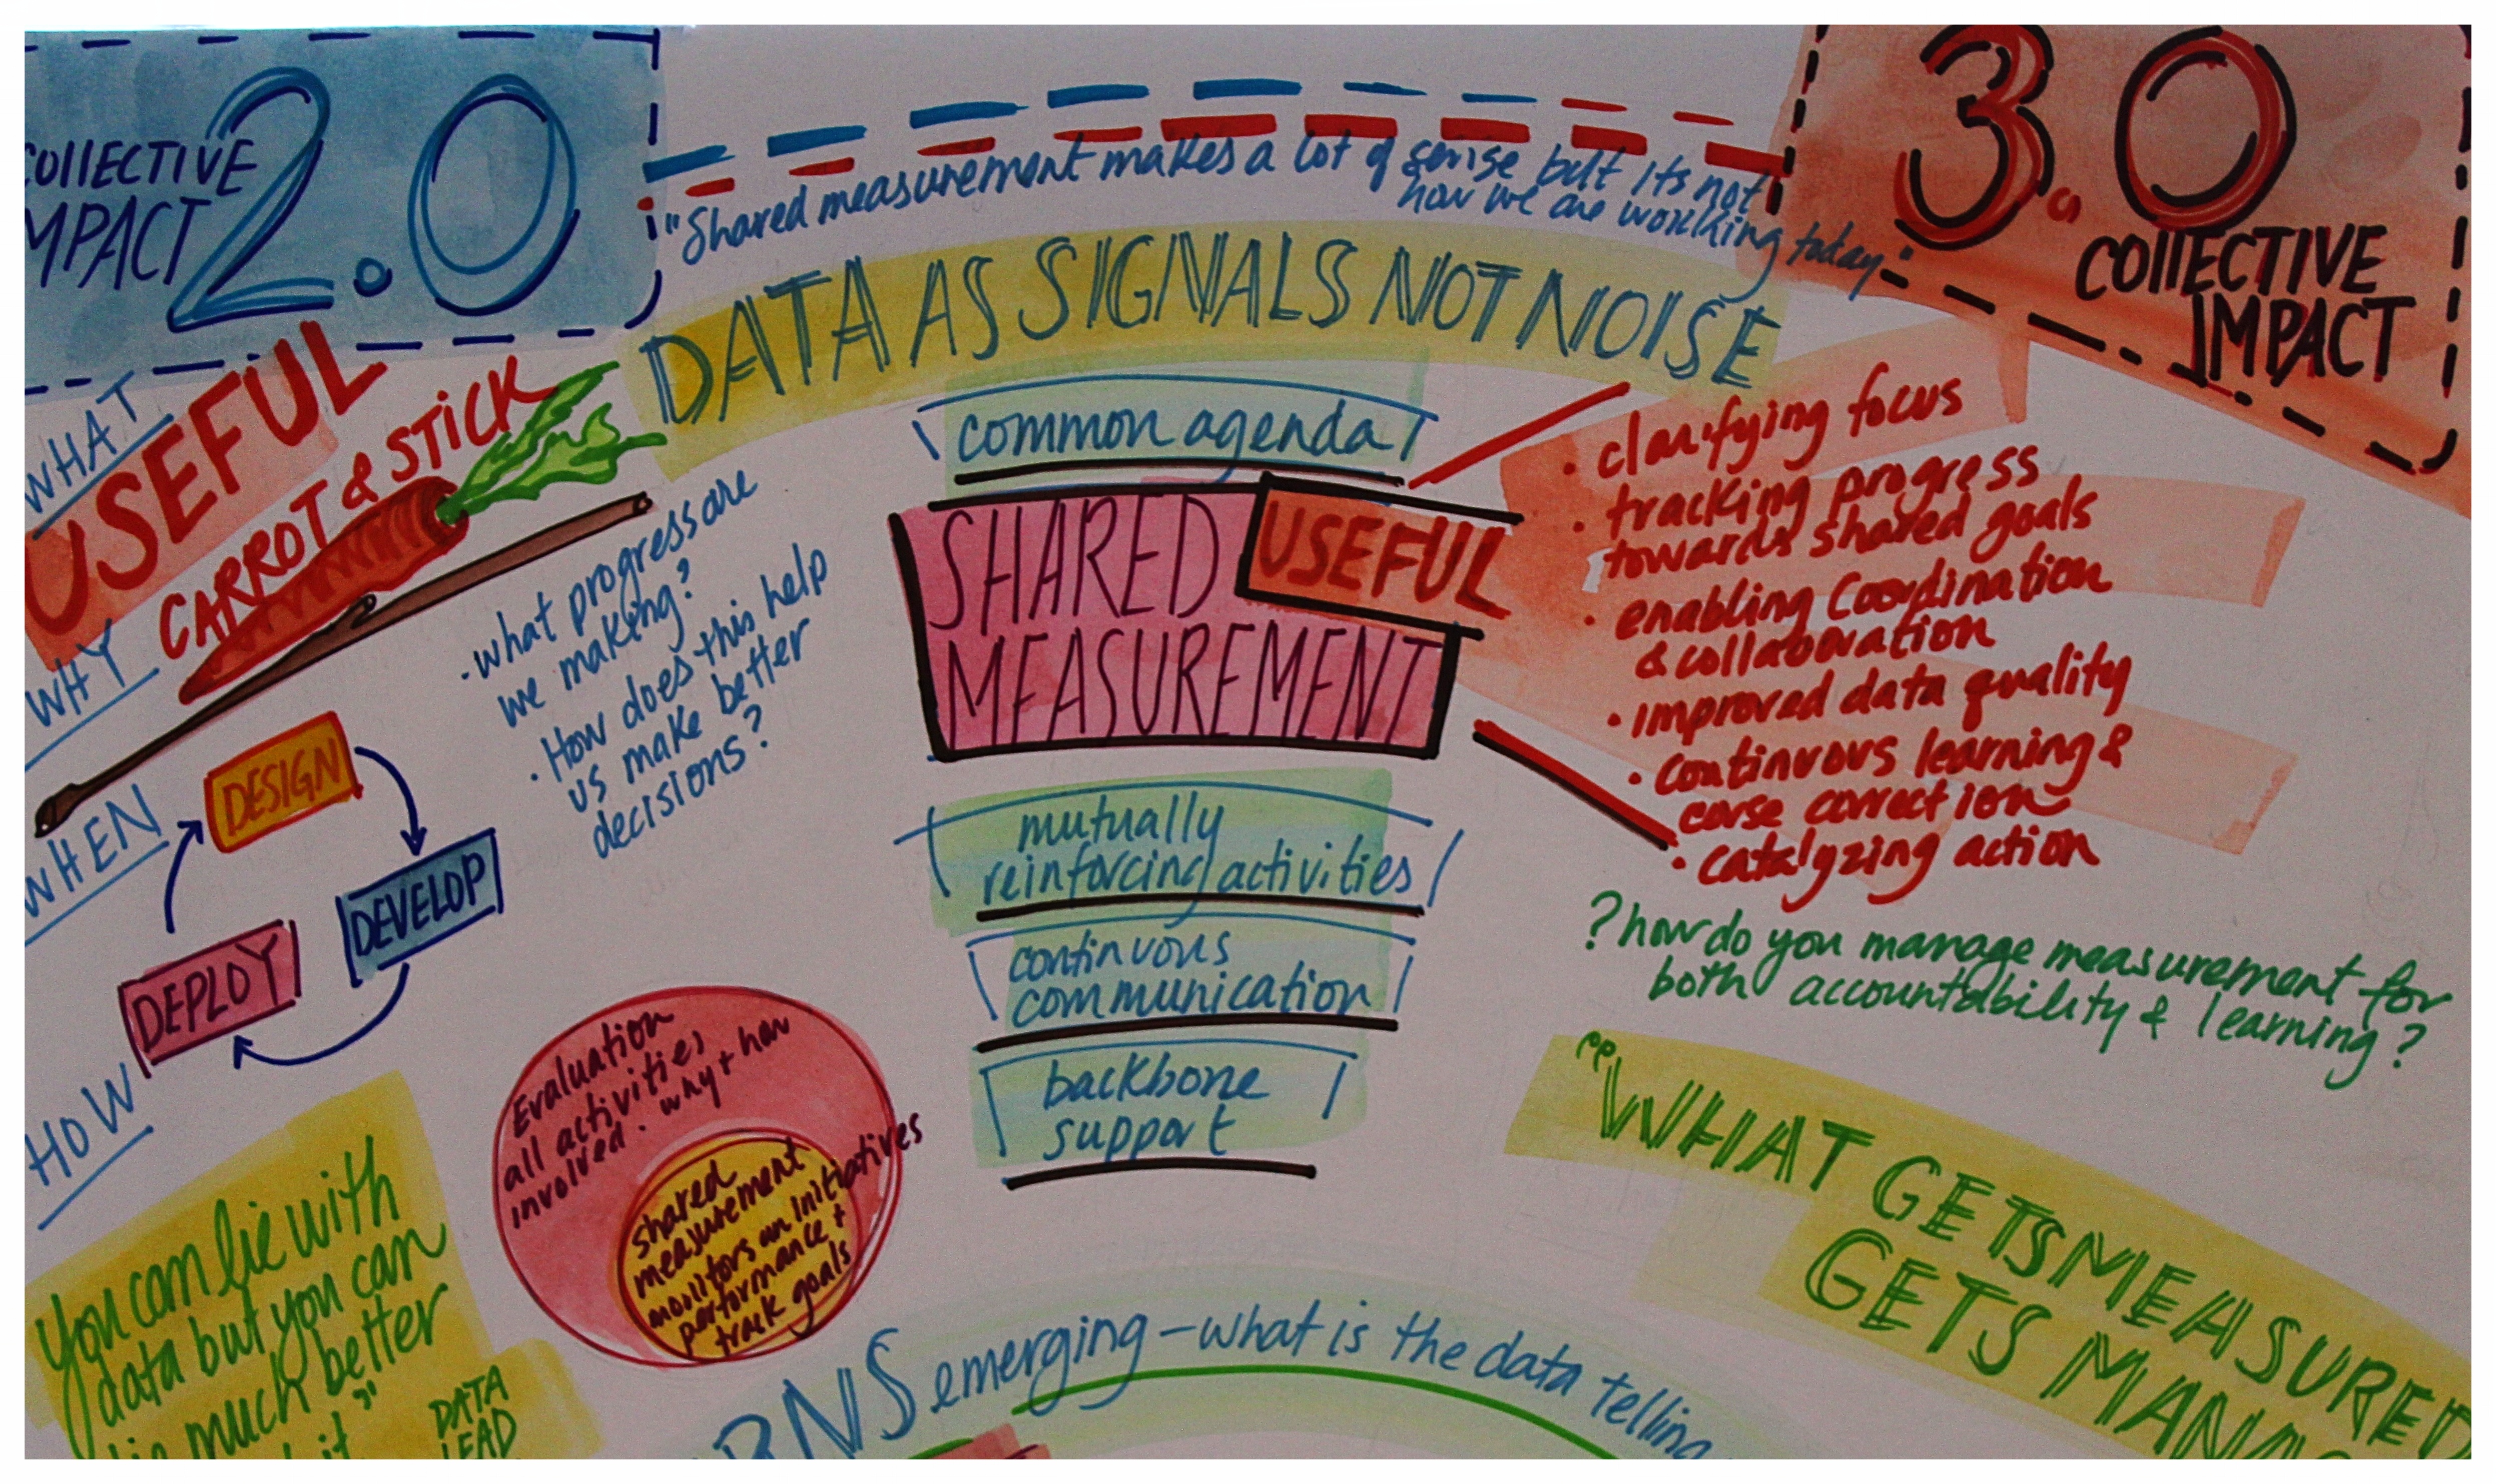 COLLECTIVE
IMPACT
2.0
"Shared measurement makes a lot of sense but its not
how we are working today"
3.0
COLLECTIVE
IMPACT
DATA AS SIGNALS NOT NOISE
WHAT
USEFUL
CARROT & STICK
WHY
• what progress are
we making?
• How does this help
us make better
decisions?
WHEN
DESIGN
DEVELOP
DEPLOY
HOW
common agenda
SHARED
USEFUL
MEASUREMENT
mutually
reinforcing activities
continuous
communication
backbone
support
• clarifying focus
• tracking progress
towards shared goals
• enabling coordination
& collaboration
• improved data quality
• continuous learning &
corse correction
• catalyzing action
? how do you manage measurement for
both accountability & learning?
"WHAT GETS MEASURED
GETS
Evaluation
all activities
involved. why + how
shared
measurement
monitors an initiatives
performance +
track goals
You can lie with
data but you can
lie much better
it"
DATA
LEAD
emerging - what is the data telling